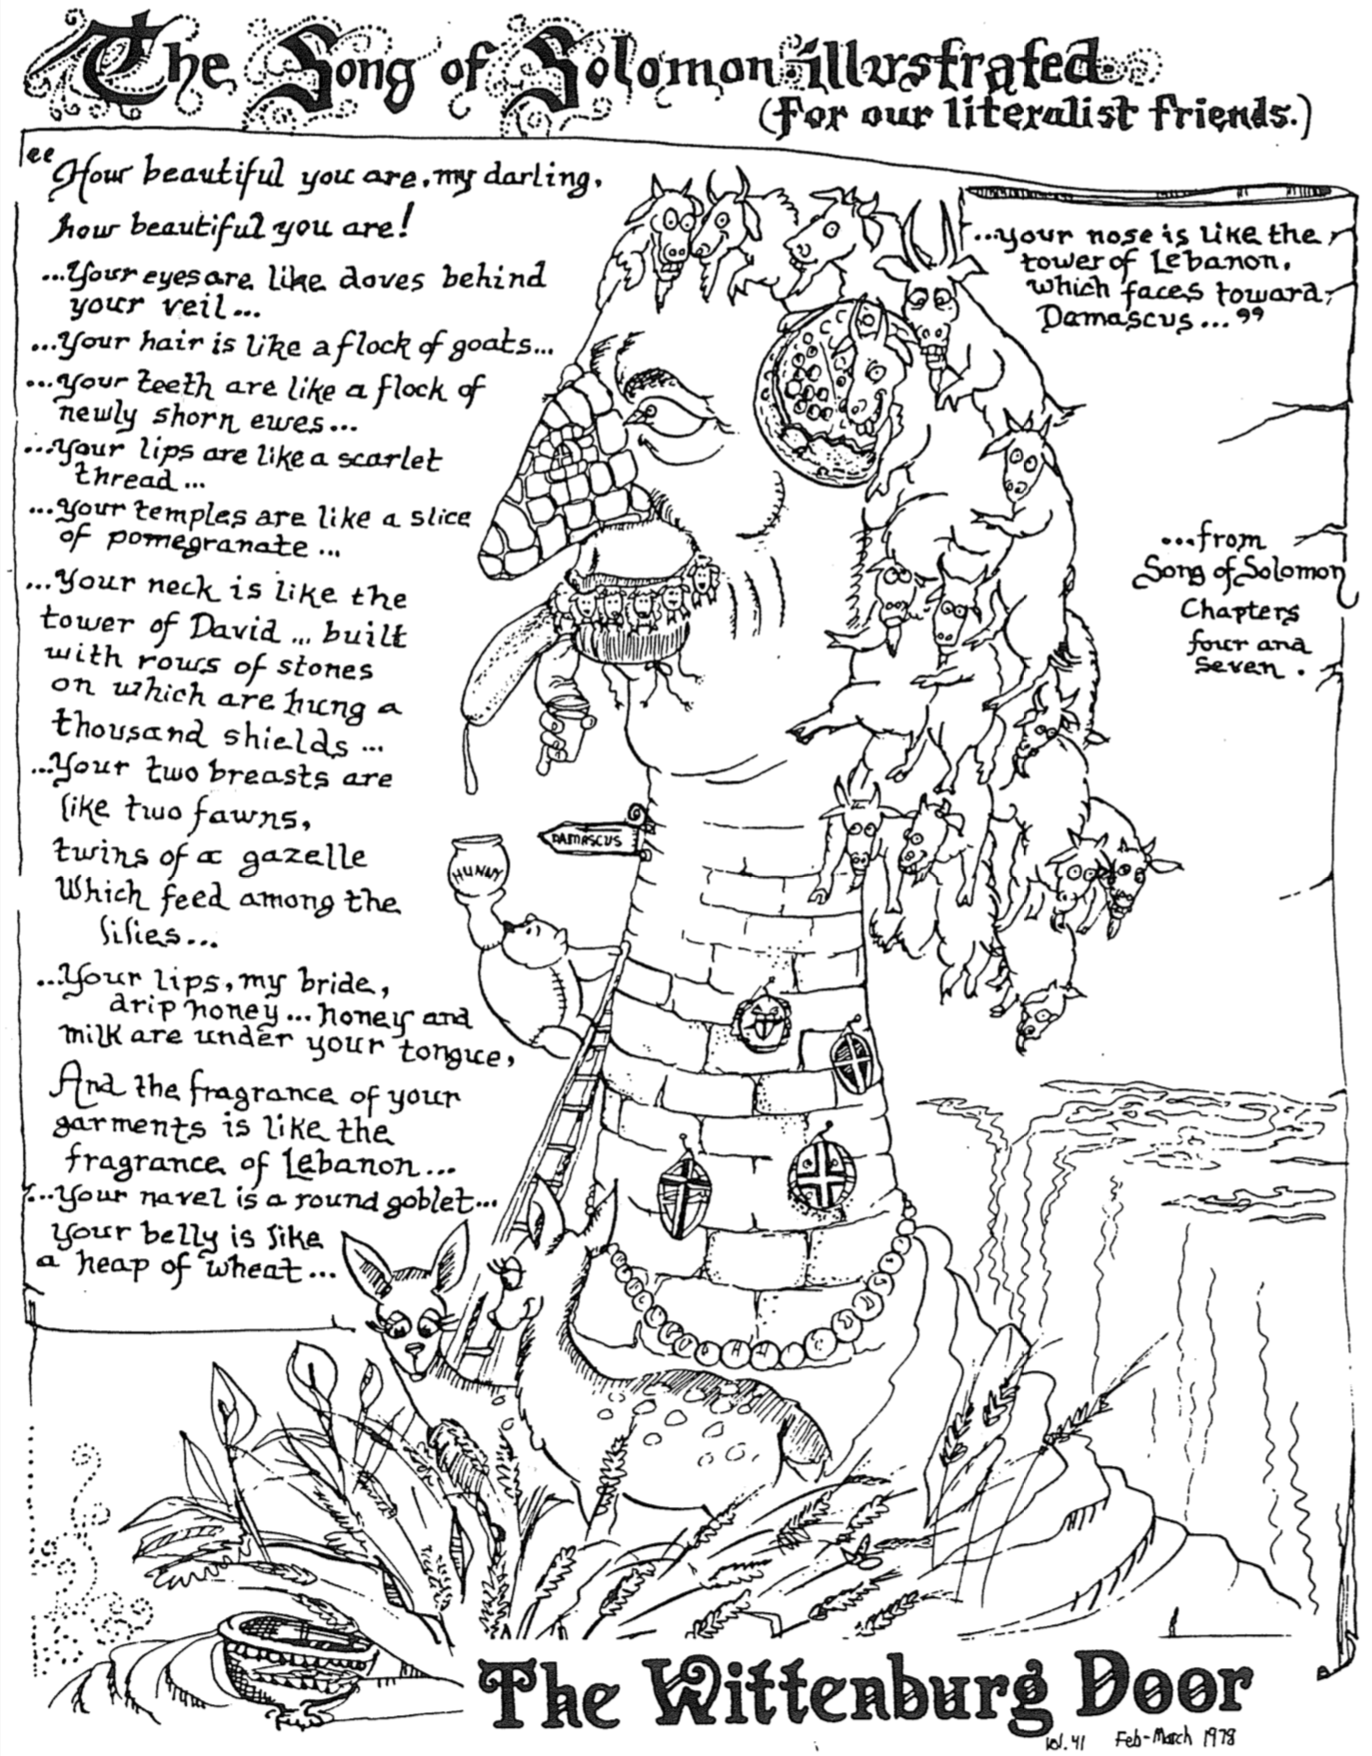 The Song of Solomon illustrated.
(for our literalist friends.)
"How beautiful you are, my darling,
how beautiful you are!
...Your eyes are like doves behind
your veil...
...Your hair is like a flock of goats...
...your teeth are like a flock of
newly shorn ewes...
...your lips are like a scarlet
thread...
...your temples are like a slice
of pomegranate...
...Your neck is like the
tower of David ... built
with rows of stones
on which are hung a
thousand shields ...
...Your two breasts are
like two fawns,
twins of a gazelle
Which feed among the
lilies...
...Your lips, my bride,
drip honey... honey and
milk are under your tongue,
And the fragrance of your
garments is like the
fragrance of Lebanon...
...Your navel is a round goblet...
your belly is like
a heap of wheat...
...your nose is like the
tower of Lebanon,
which faces toward
Damascus..."
...from
Song of Solomon
Chapters
four and
seven.
DAMASCUS
HUNNY
The Wittenburg Door
Vol. 41 Feb-March 1978